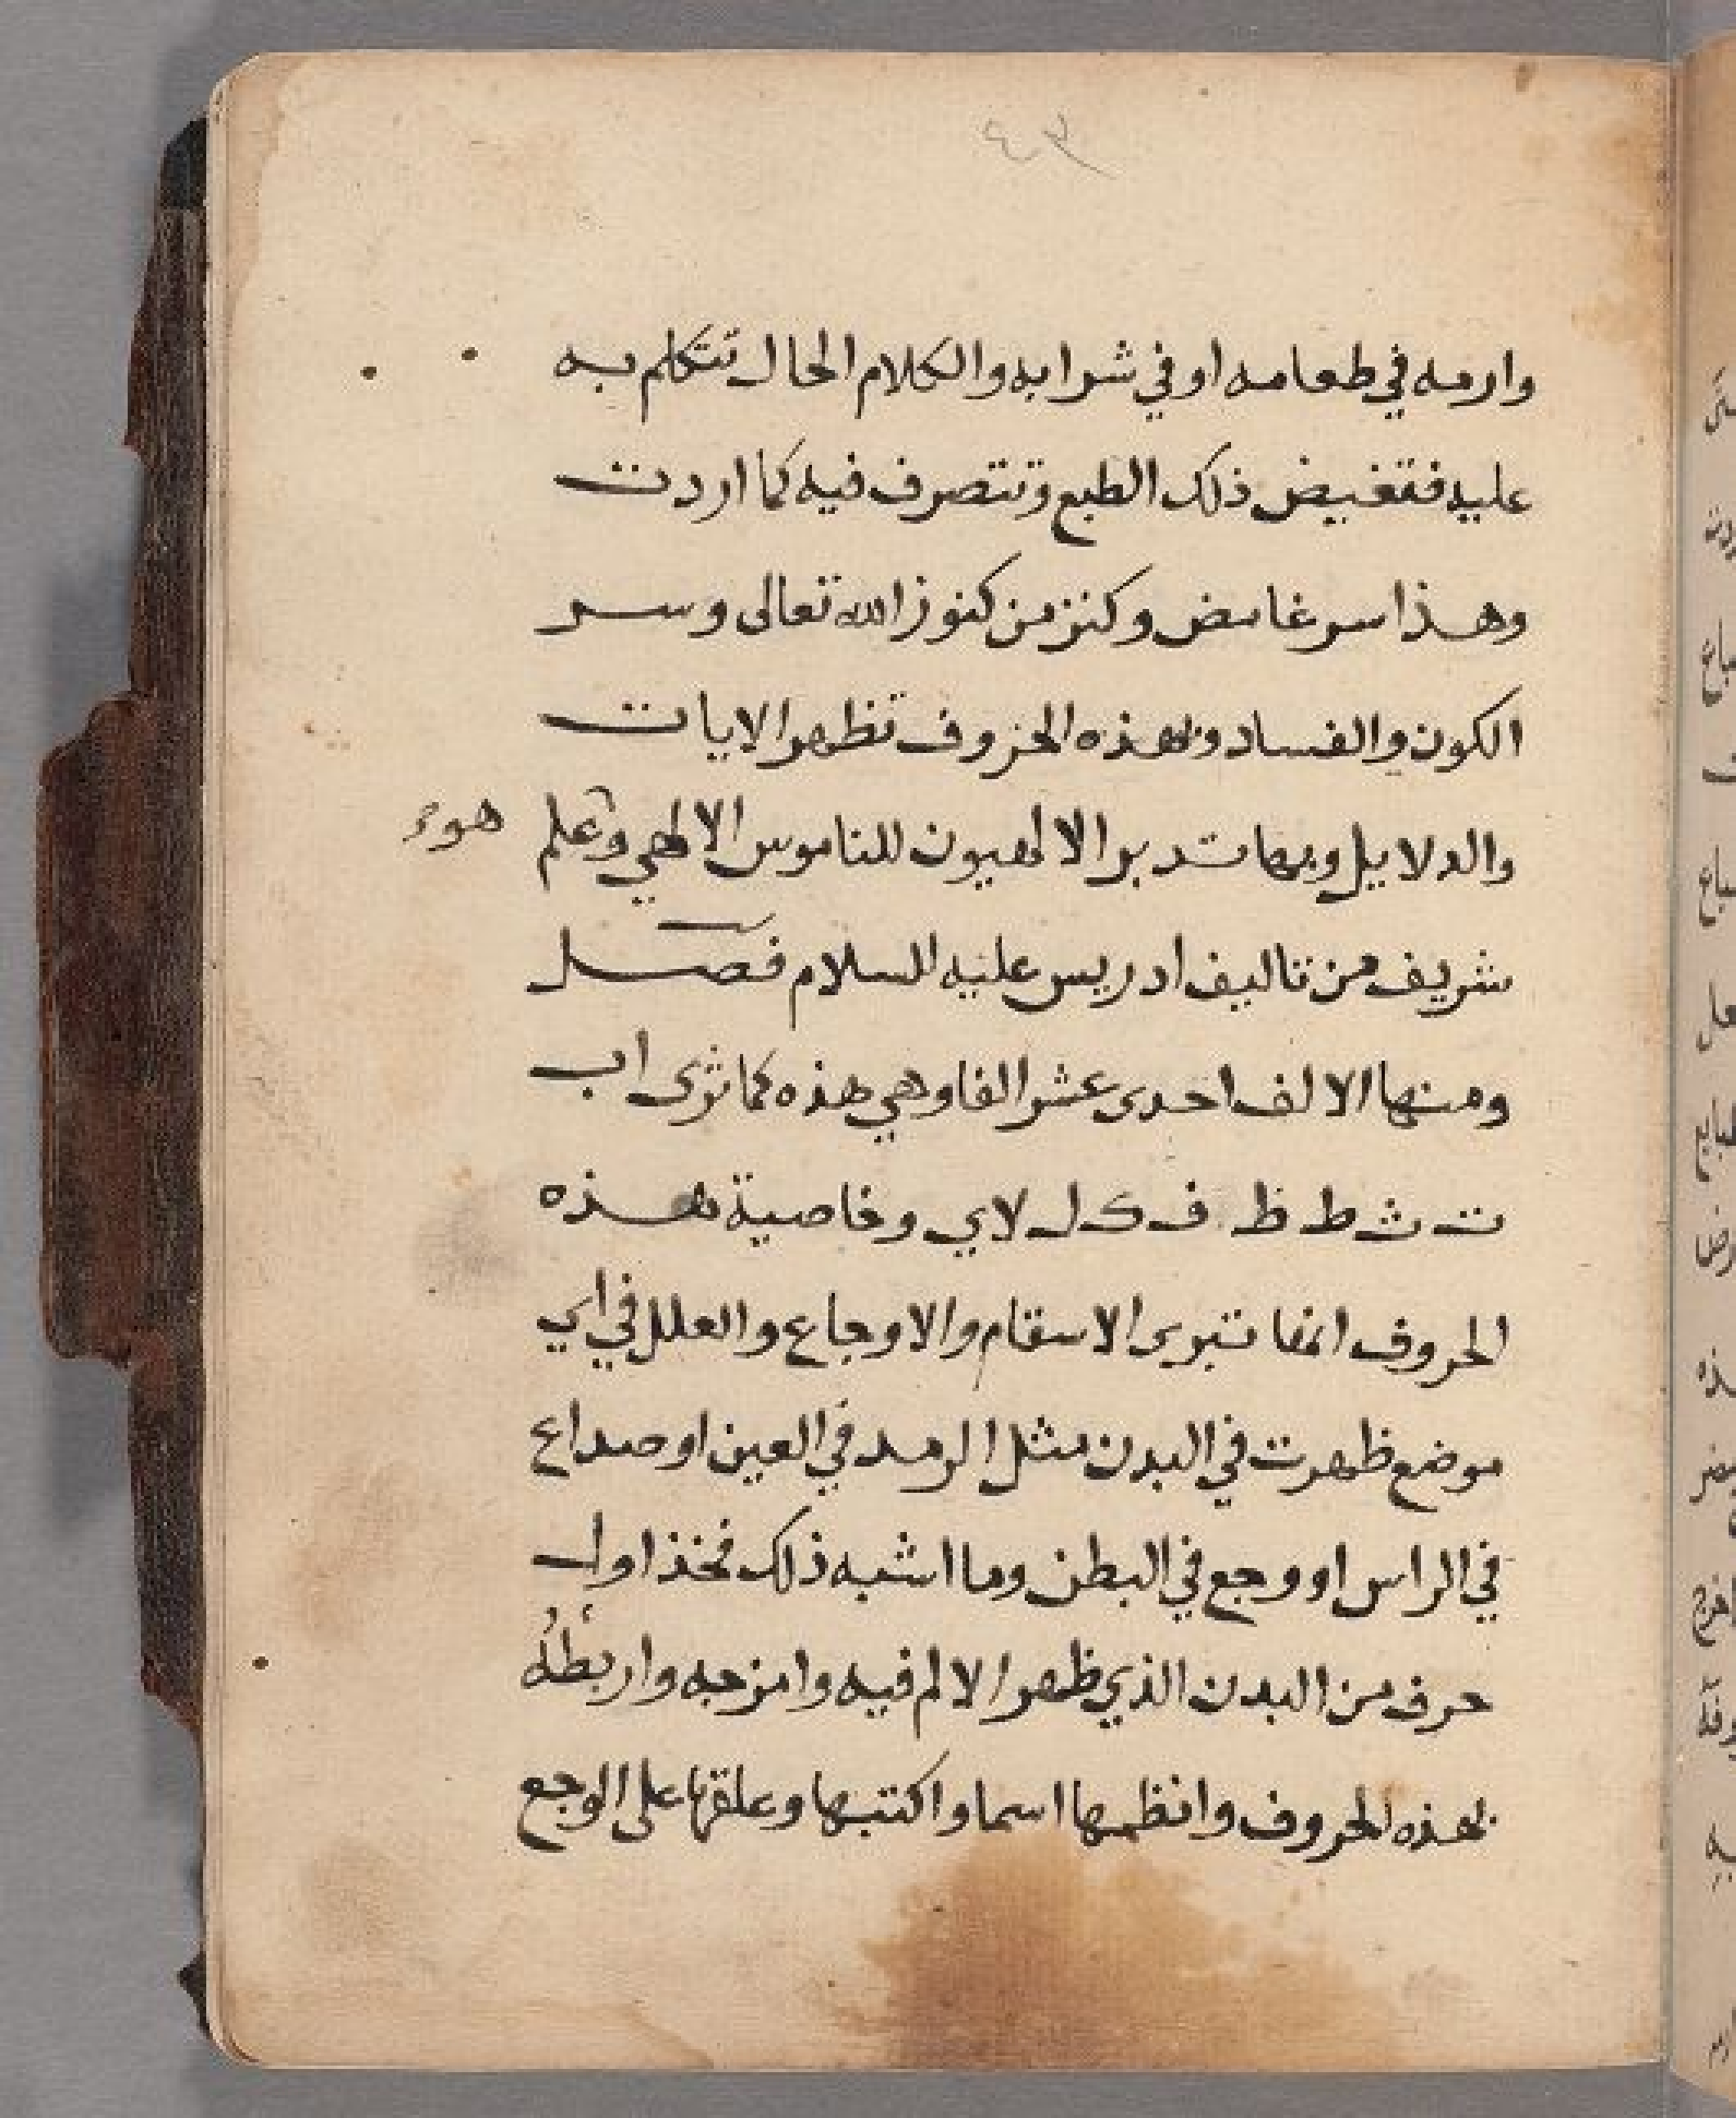 ٤٣
وارمه في طعامه او في شرابه والكلام الحال تتكلم به
عليه فتغيض ذلك الطبع وتتصرف فيه كما اردت
وهذا سر غامض وكنز من كنوز الله تعالى وسر
الكون والفساد وبهذه الحروف تظهر الايات
والدلايل وبها تدبر الالهيون للناموس الالهي وعلم
هو
شريف من تاليف ادريس عليه السلام فصل
ومنها الالف احدى عشر الفا وهي هذه كما ترى ا ب
ت ث ط ظ ف ك ل لا ي وخاصية هذه
الحروف انها تبرى الاسقام والاوجاع والعلل في اي
موضع ظهرت في البدن مثل الرمد في العين او صداع
في الراس او وجع في البطن وما اشبه ذلك فخذ اول
حرف من البدن الذي ظهر الالم فيه وامزجه واربطه
بهذه الحروف وانظمها اسما واكتبها وعلقها على الوجع